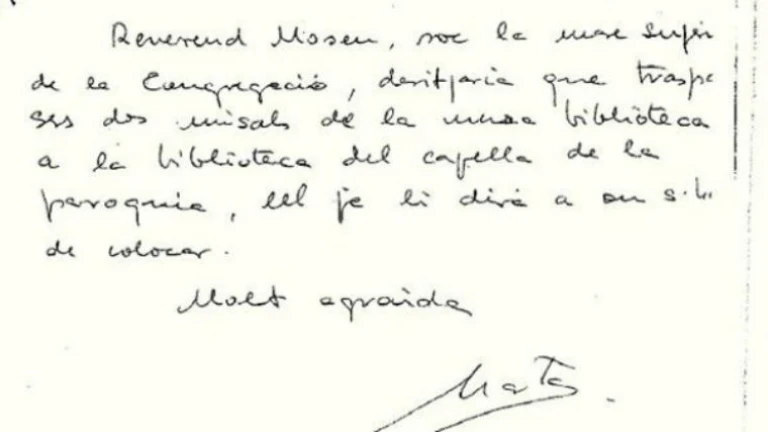 Reverend Mosen, soc la mare Super
de la Congregació, desitjaria que traspa
ses dos misals de la meva biblioteca
a la biblioteca del capella de la
paroquia, ell je li dirà a on s.hi
de colocar.
Molt agraida